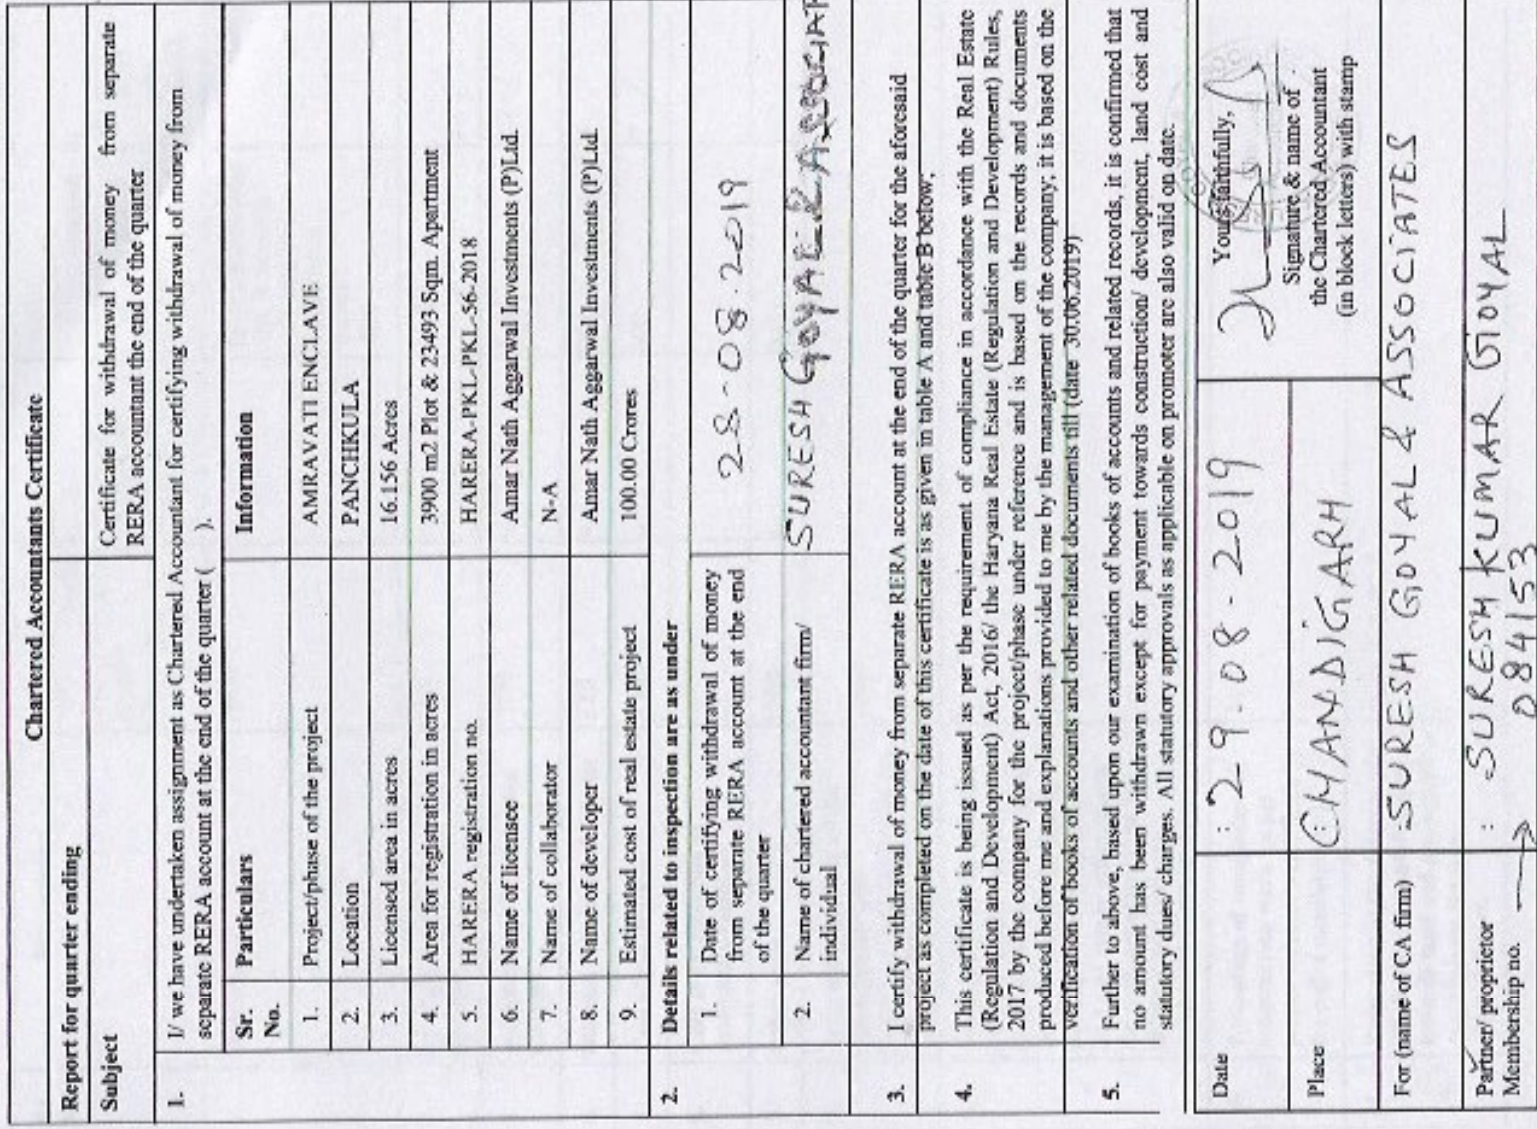 Chartered Accountants Certificate
Report for quarter ending
Subject
Certificate for withdrawal of money from separate
RERA accountant the end of the quarter
1.
I/ we have undertaken assignment as Chartered Accountant for certifying withdrawal of money from
separate RERA account at the end of the quarter ( ).
Sr. No. Particulars Information
1. Project/phase of the project AMRAVATI ENCLAVE
2. Location PANCHKULA
3. Licensed area in acres 16.156 Acres
4. Area for registration in acres 3900 m2 Plot & 23493 Sqm. Apartment
5. HARERA registration no. HARERA-PKL-PKL-56-2018
6. Name of licensee Amar Nath Aggarwal Investments (P)Ltd.
7. Name of collaborator N-A
8. Name of developer Amar Nath Aggarwal Investments (P)Ltd.
9. Estimated cost of real estate project 100.00 Crores
2. Details related to inspection are as under
1. Date of certifying withdrawal of money
from separate RERA account at the end
of the quarter
28-08-2019
2. Name of chartered accountant firm/
individual
SURESH GOYAL & ASSOCIAT
3. I certify withdrawal of money from separate RERA account at the end of the quarter for the aforesaid
project as completed on the date of this certificate is as given in table A and table B below;
4. This certificate is being issued as per the requirement of compliance in accordance with the Real Estate
(Regulation and Development) Act, 2016/ the Haryana Real Estate (Regulation and Development) Rules,
2017 by the company for the project/phase under reference and is based on the records and documents
produced before me and explanations provided to me by the management of the company; it is based on the
verification of books of accounts and other related documents till (date 30.06.2019)
5. Further to above, based upon our examination of books of accounts and related records, it is confirmed that
no amount has been withdrawn except for payment towards construction/ development, land cost and
statutory dues/ charges. All statutory approvals as applicable on promoter are also valid on date.
Date : 29-08-2019
Yours faithfully,
Signature & name of
the Chartered Accountant
(in block letters) with stamp
Place : CHANDIGARH
For (name of CA firm) SURESH GOYAL & ASSOCIATES
Partner/ proprietor : SURESH KUMAR GOYAL
Membership no. 084153